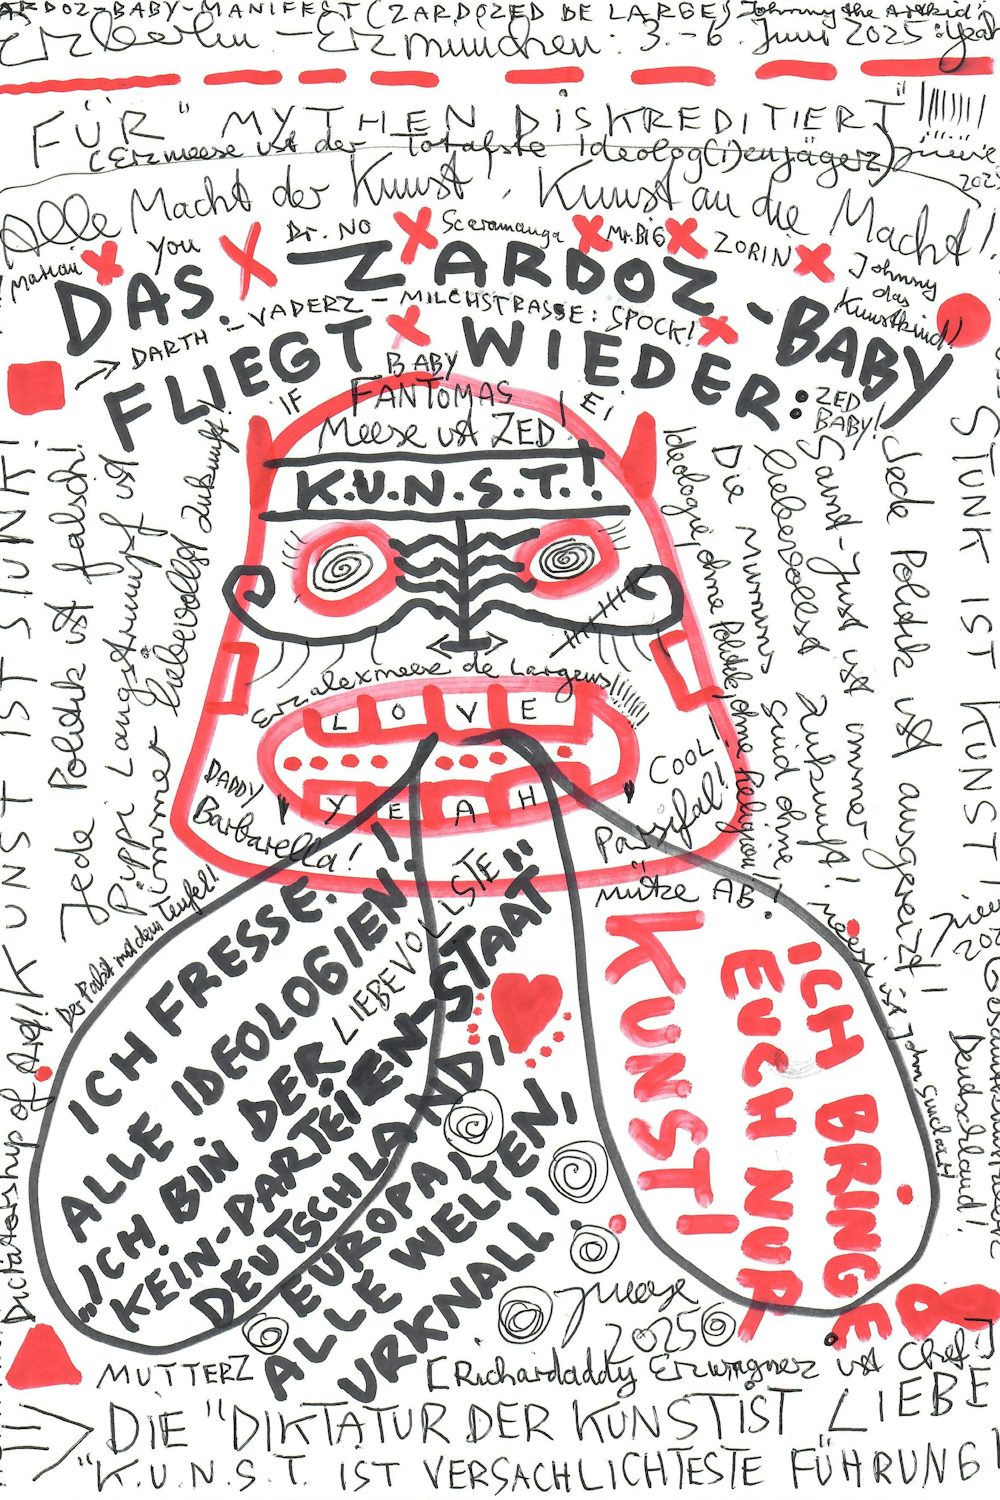 ARDOZ-BABY-MANIFEST (ZARDOZED DE LARGE) Johnny the Artkid:
Erzberlin - Erzmünchen: 3.-6. Juni 2025: Yeah
"FÜR" MYTHEN DISKREDITIERT"
(Erzmeese ist der Totalste Ideolog(i)enjäger)
Alle Macht der Kunst, Kunst an die Macht!
you
Dr. NO
Scaramanga
Mr. BIG
ZORIN
Johnny
das
Kunstkind!
DAS ZARDOZ-BABY
DARTH-VADERZ-MILCHSTRASSE: SPOCK!
FLIEGT WIEDER:
ZED
BABY!
BABY
IF FANTOMAS
EI
Meese ist ZED
K.U.N.S.T.!
Erzalexmeese de Large
LOVE
YEAH
DADDY
Barbarella!
COOL!
Parsifal!
mütze AB.
KUNST IST STUNK!
Jede Politik ist falsch!
Pippi Langstrumpf ist
immer liebevollst Zukunft!
Der Pakt mit dem Teufel!
Ideologie, ohne Politik, ohne Religion!
Die Mumins sind ohne
liebevollst Zukunft!
Saint-Just ist immer
Jede Politik ist ausgereizt!
STUNK IST KUNST!
Gesamtkunstwerk
Deutschland!
meese ist John Sinclair!
Dictatorship of Art!
ICH FRESSE
ALLE IDEOLOGIEN!
"ICH BIN DER LIEBEVOLLSTE
KEIN-PARTEIEN-STAAT"
DEUTSCHLAND!
EUROPA!
ALLE WELTEN,
URKNALL!
ICH BRINGE
EUCH NUR
KUNST!
Jmeese
2025
MUTTERZ
[Richarddaddy Erzwagnerz ist Chef]
=> DIE "DIKTATUR DER KUNST IST LIEBE
"K.U.N.S.T. IST VERSACHLICHTESTE FÜHRUNG!